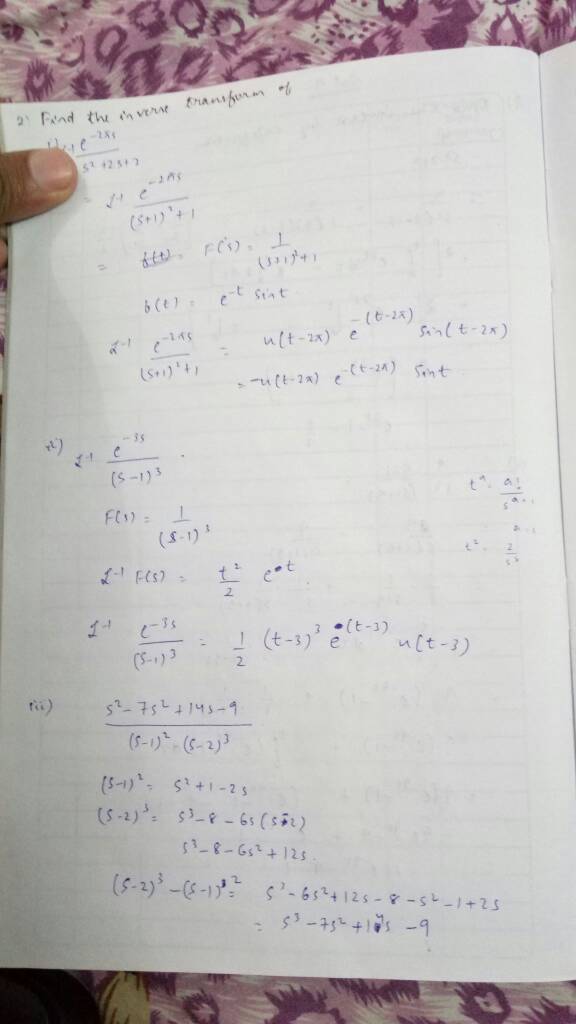 2) Find the inverse transform of
e^{-2πs} / s² + 2s + 2
= L^{-1} e^{-2πs} / (s+1)² + 1
= F(s) = 1 / (s+1)² + 1
f(t) = e^{-t} sin t
L^{-1} e^{-2πs} / (s+1)² + 1 = u(t-2π) e^{-(t-2π)} sin(t-2π)
= u(t-2π) e^{-(t-2π)} sin t
ii) L^{-1} e^{-3s} / (s-1)³
t^a = a! / s^{a+1}
F(s) = 1 / (s-1)³
t² = 2 / s³
L^{-1} F(s) = t²/2 e^{t}
L^{-1} e^{-3s} / (s-1)³ = 1/2 (t-3)³ e^{(t-3)} u(t-3)
iii) s² - 7s² + 14s - 9 / (s-1)² · (s-2)³
(s-1)² = s² + 1 - 2s
(s-2)³ = s³ - 8 - 6s (s-2)
s³ - 8 - 6s² + 12s
(s-2)³ - (s-1)² = s³ - 6s² + 12s - 8 - s² - 1 + 2s
= s³ - 7s² + 14s - 9